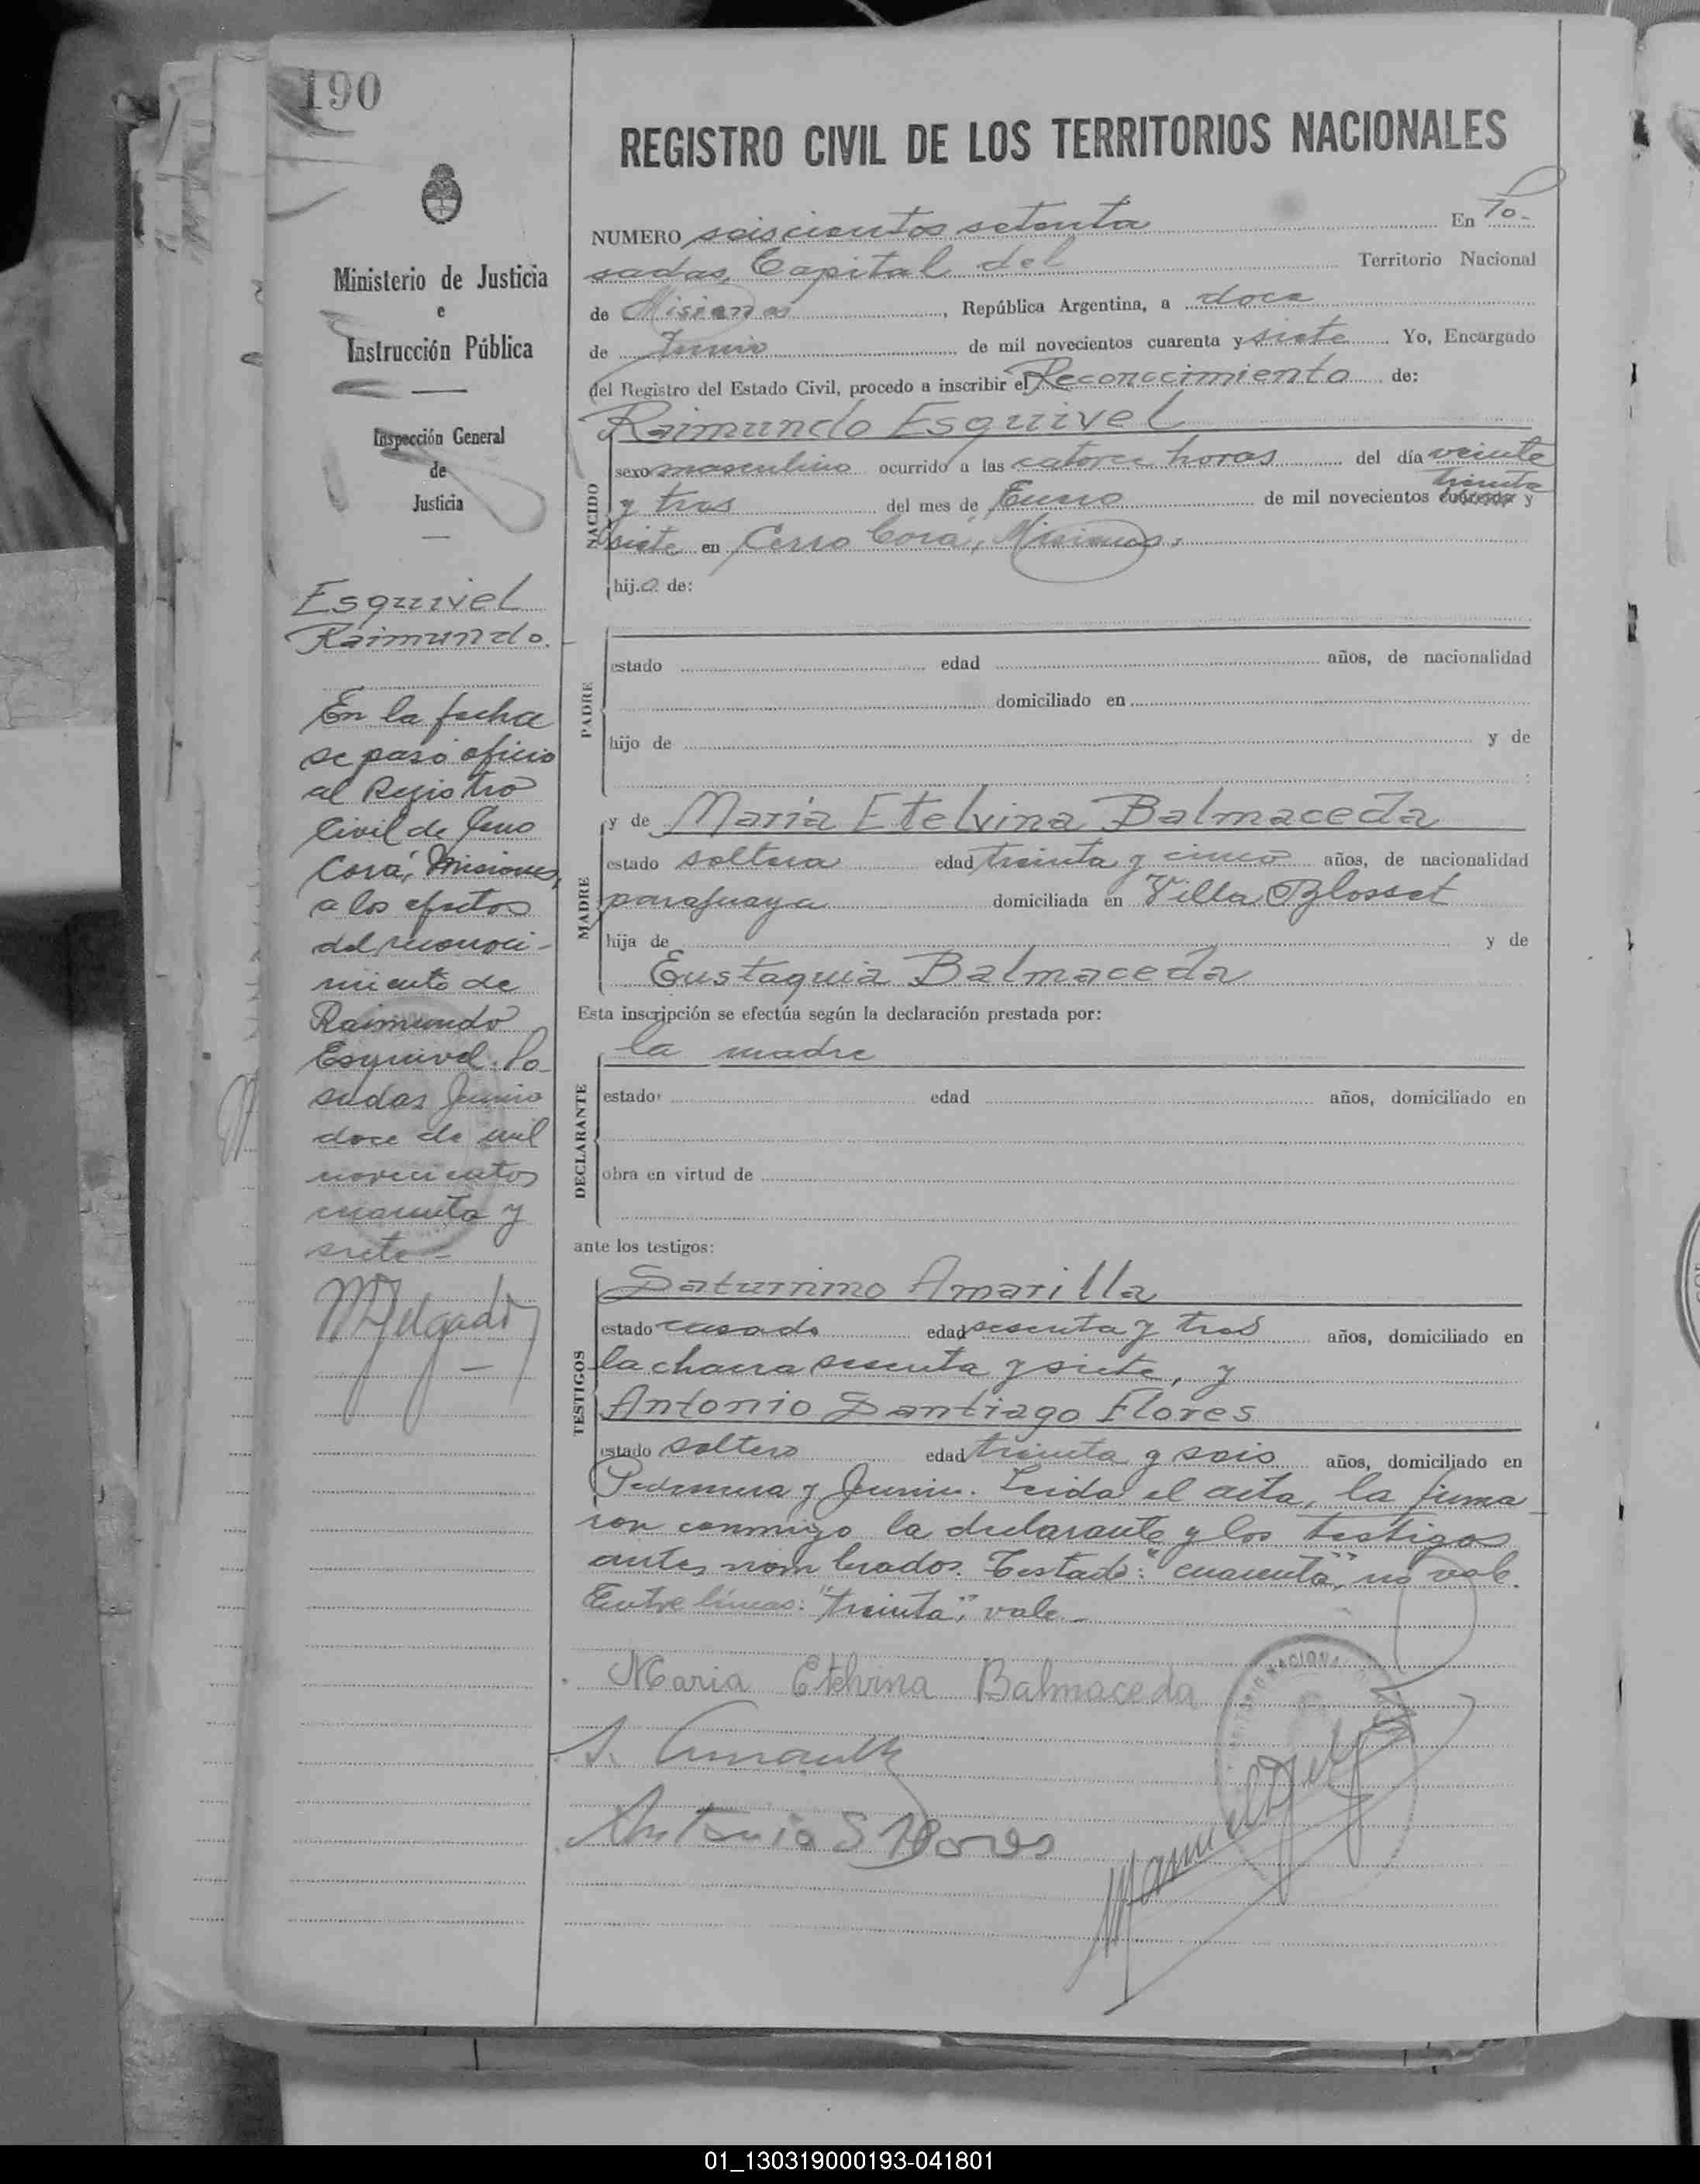 190
Ministerio de Justicia
e
Instrucción Pública
Inspección General
de
Justicia
Esquivel
Raimundo.
En la fecha
se pasó oficio
al Registro
Civil de Cerro
Corá, Misiones,
a los efectos
del reconoci-
miento de
Raimundo
Esquivel. Po-
sadas Junio
doce de mil
novecientos
cuarenta y
siete -
MDelgado
REGISTRO CIVIL DE LOS TERRITORIOS NACIONALES
NUMERO seiscientos setenta En Po-
sadas, Capital del Territorio Nacional
de Misiones, República Argentina, a doce
de Junio de mil novecientos cuarenta y siete Yo, Encargado
del Registro del Estado Civil, procedo a inscribir el Reconocimiento de:
Raimundo Esquivel
NACIDO
sexo masculino ocurrido a las catorce horas del día veinte
treinta
y tres del mes de Enero de mil novecientos cuarenta y
siete en Cerro Corá, Misiones,
hijo de:
PADRE
estado edad años, de nacionalidad
domiciliado en
hijo de y de
MADRE
y de María Etelvina Balmaceda
estado soltera edad treinta y cinco años, de nacionalidad
paraguaya domiciliada en Villa Blosset
hija de y de
Eustaquia Balmaceda
Esta inscripción se efectúa según la declaración prestada por:
DECLARANTE
la madre
estado edad años, domiciliado en
obra en virtud de
ante los testigos:
TESTIGOS
Saturnino Amarilla
estado casado edad sesenta y tres años, domiciliado en
la chacra sesenta y siete, y
Antonio Santiago Flores
estado soltero edad treinta y seis años, domiciliado en
y Junin. Leida el acta, la firma
ron conmigo la declarante y los testigos
antes nombrados. Testado: "cuarenta", no vale.
Entre líneas: "treinta", vale -
Maria Etelvina Balmaceda
S. Amarilla
Antonio S Flores
Manuel Delgado
01_130319000193-041801